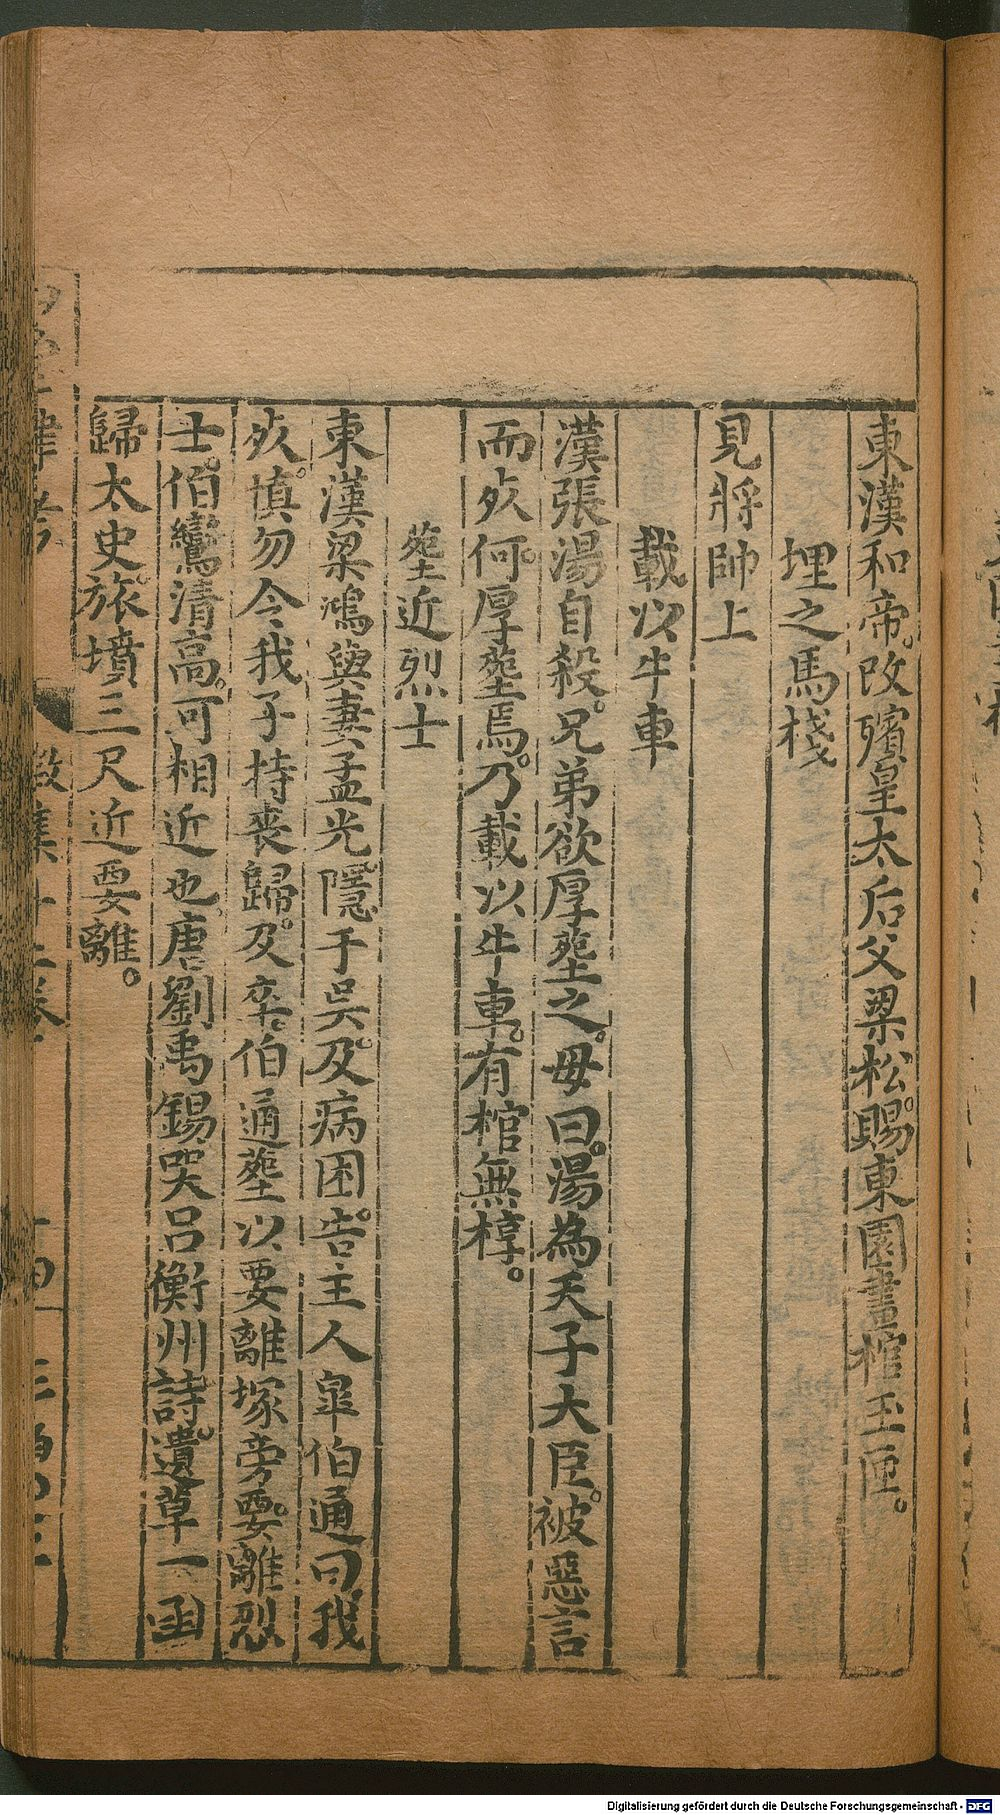 東漢和帝。改殯皇太后父梁松。賜東園畫棺玉匣。
埋之馬棧
見將帥上
載以牛車
漢張湯自殺。兄弟欲厚塟之。母曰。湯為天子大臣。被惡言
而死。何厚塟焉。乃載以牛車。有棺無椁。
塟近烈士
東漢梁鴻與妻孟光隱于吳。及病困。告主人皐伯通曰。我
死慎勿令我子持丧歸。及卒。伯通塟以要離塚旁。要離烈
士。伯鸞清高。可相近也。唐劉禹錫哭呂衡州詩。遺草一函
歸太史。旅墳三尺近要離。
Digitalisierung gefördert durch die Deutsche Forschungsgemeinschaft - DFG